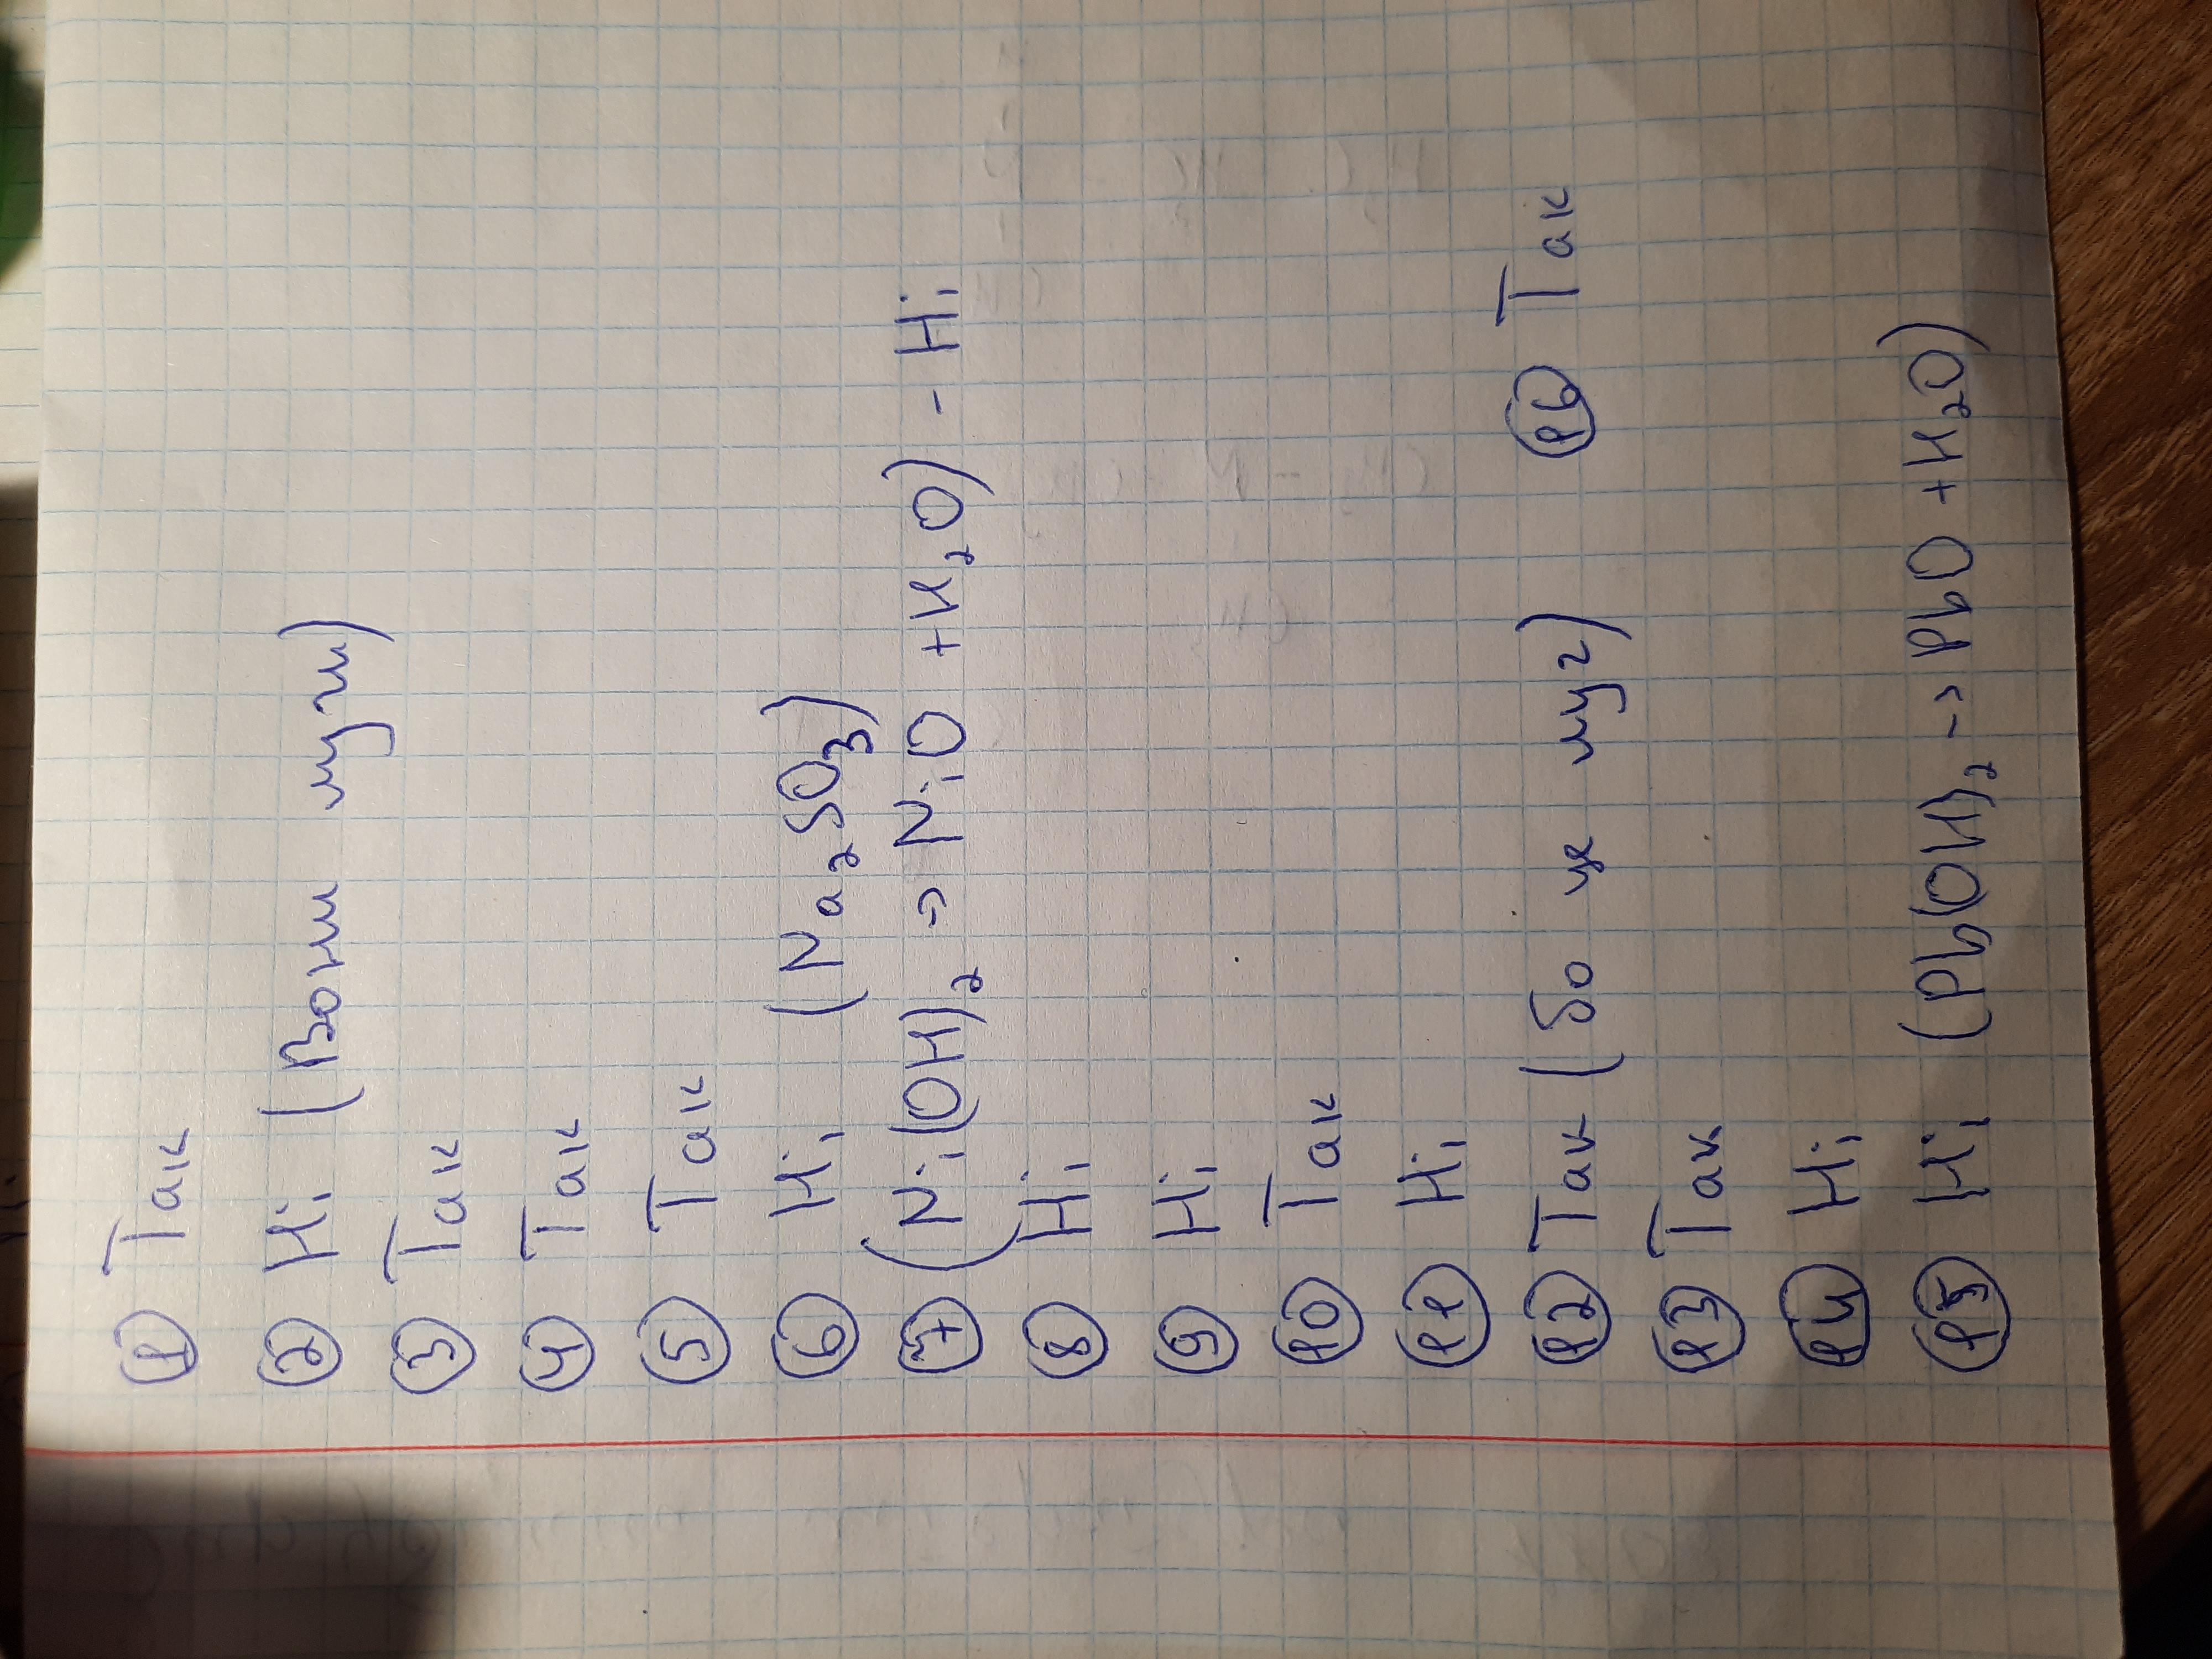 1 Так
2 Ні (Вони луги)
3 Так
4 Так
5 Так
6 Ні (Na₂SO₃)
7 (Ni(OH)₂ → NiO + H₂O) - Ні
8 Ні
9 Ні
10 Так
11 Ні
12 Так (бо це луг) 16 Так
13 Так
14 Ні
15 Ні (Pb(OH)₂ → PbO + H₂O)